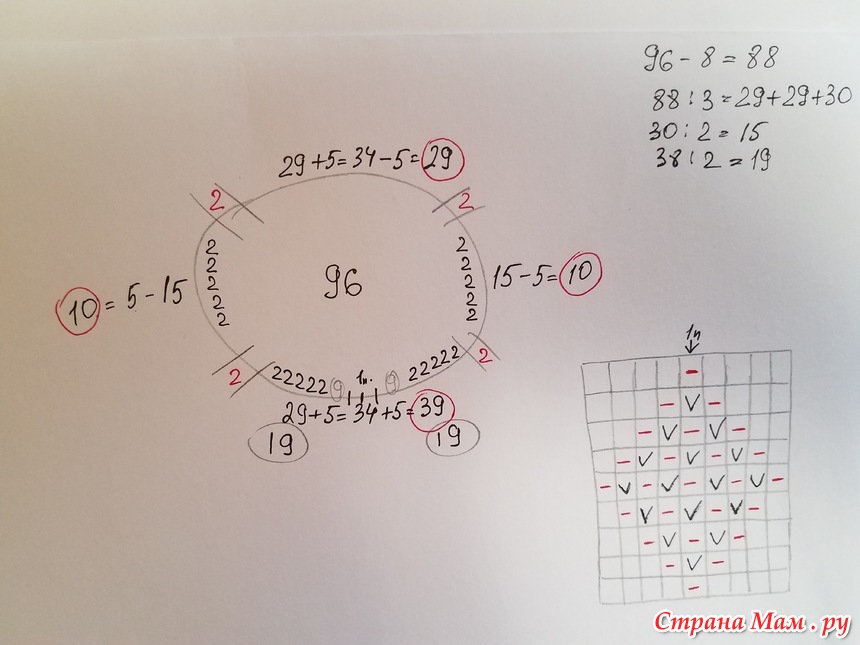 96 - 8 = 88
88 : 3 = 29+29+30
30 : 2 = 15
38 : 2 = 19
29+5=34-5=29
2 2
2 2
2 2
2 2
2 2
2 2
10 = 5-15
96
15-5=10
2 2
22222 9 1п. 9 22222
29+5=34+5=39
19 19
1п
-
- V -
- V - V -
- V - V - V -
- V - V - V - V -
- V - V - V -
- V - V -
- V -
-
Страна Мам . ру